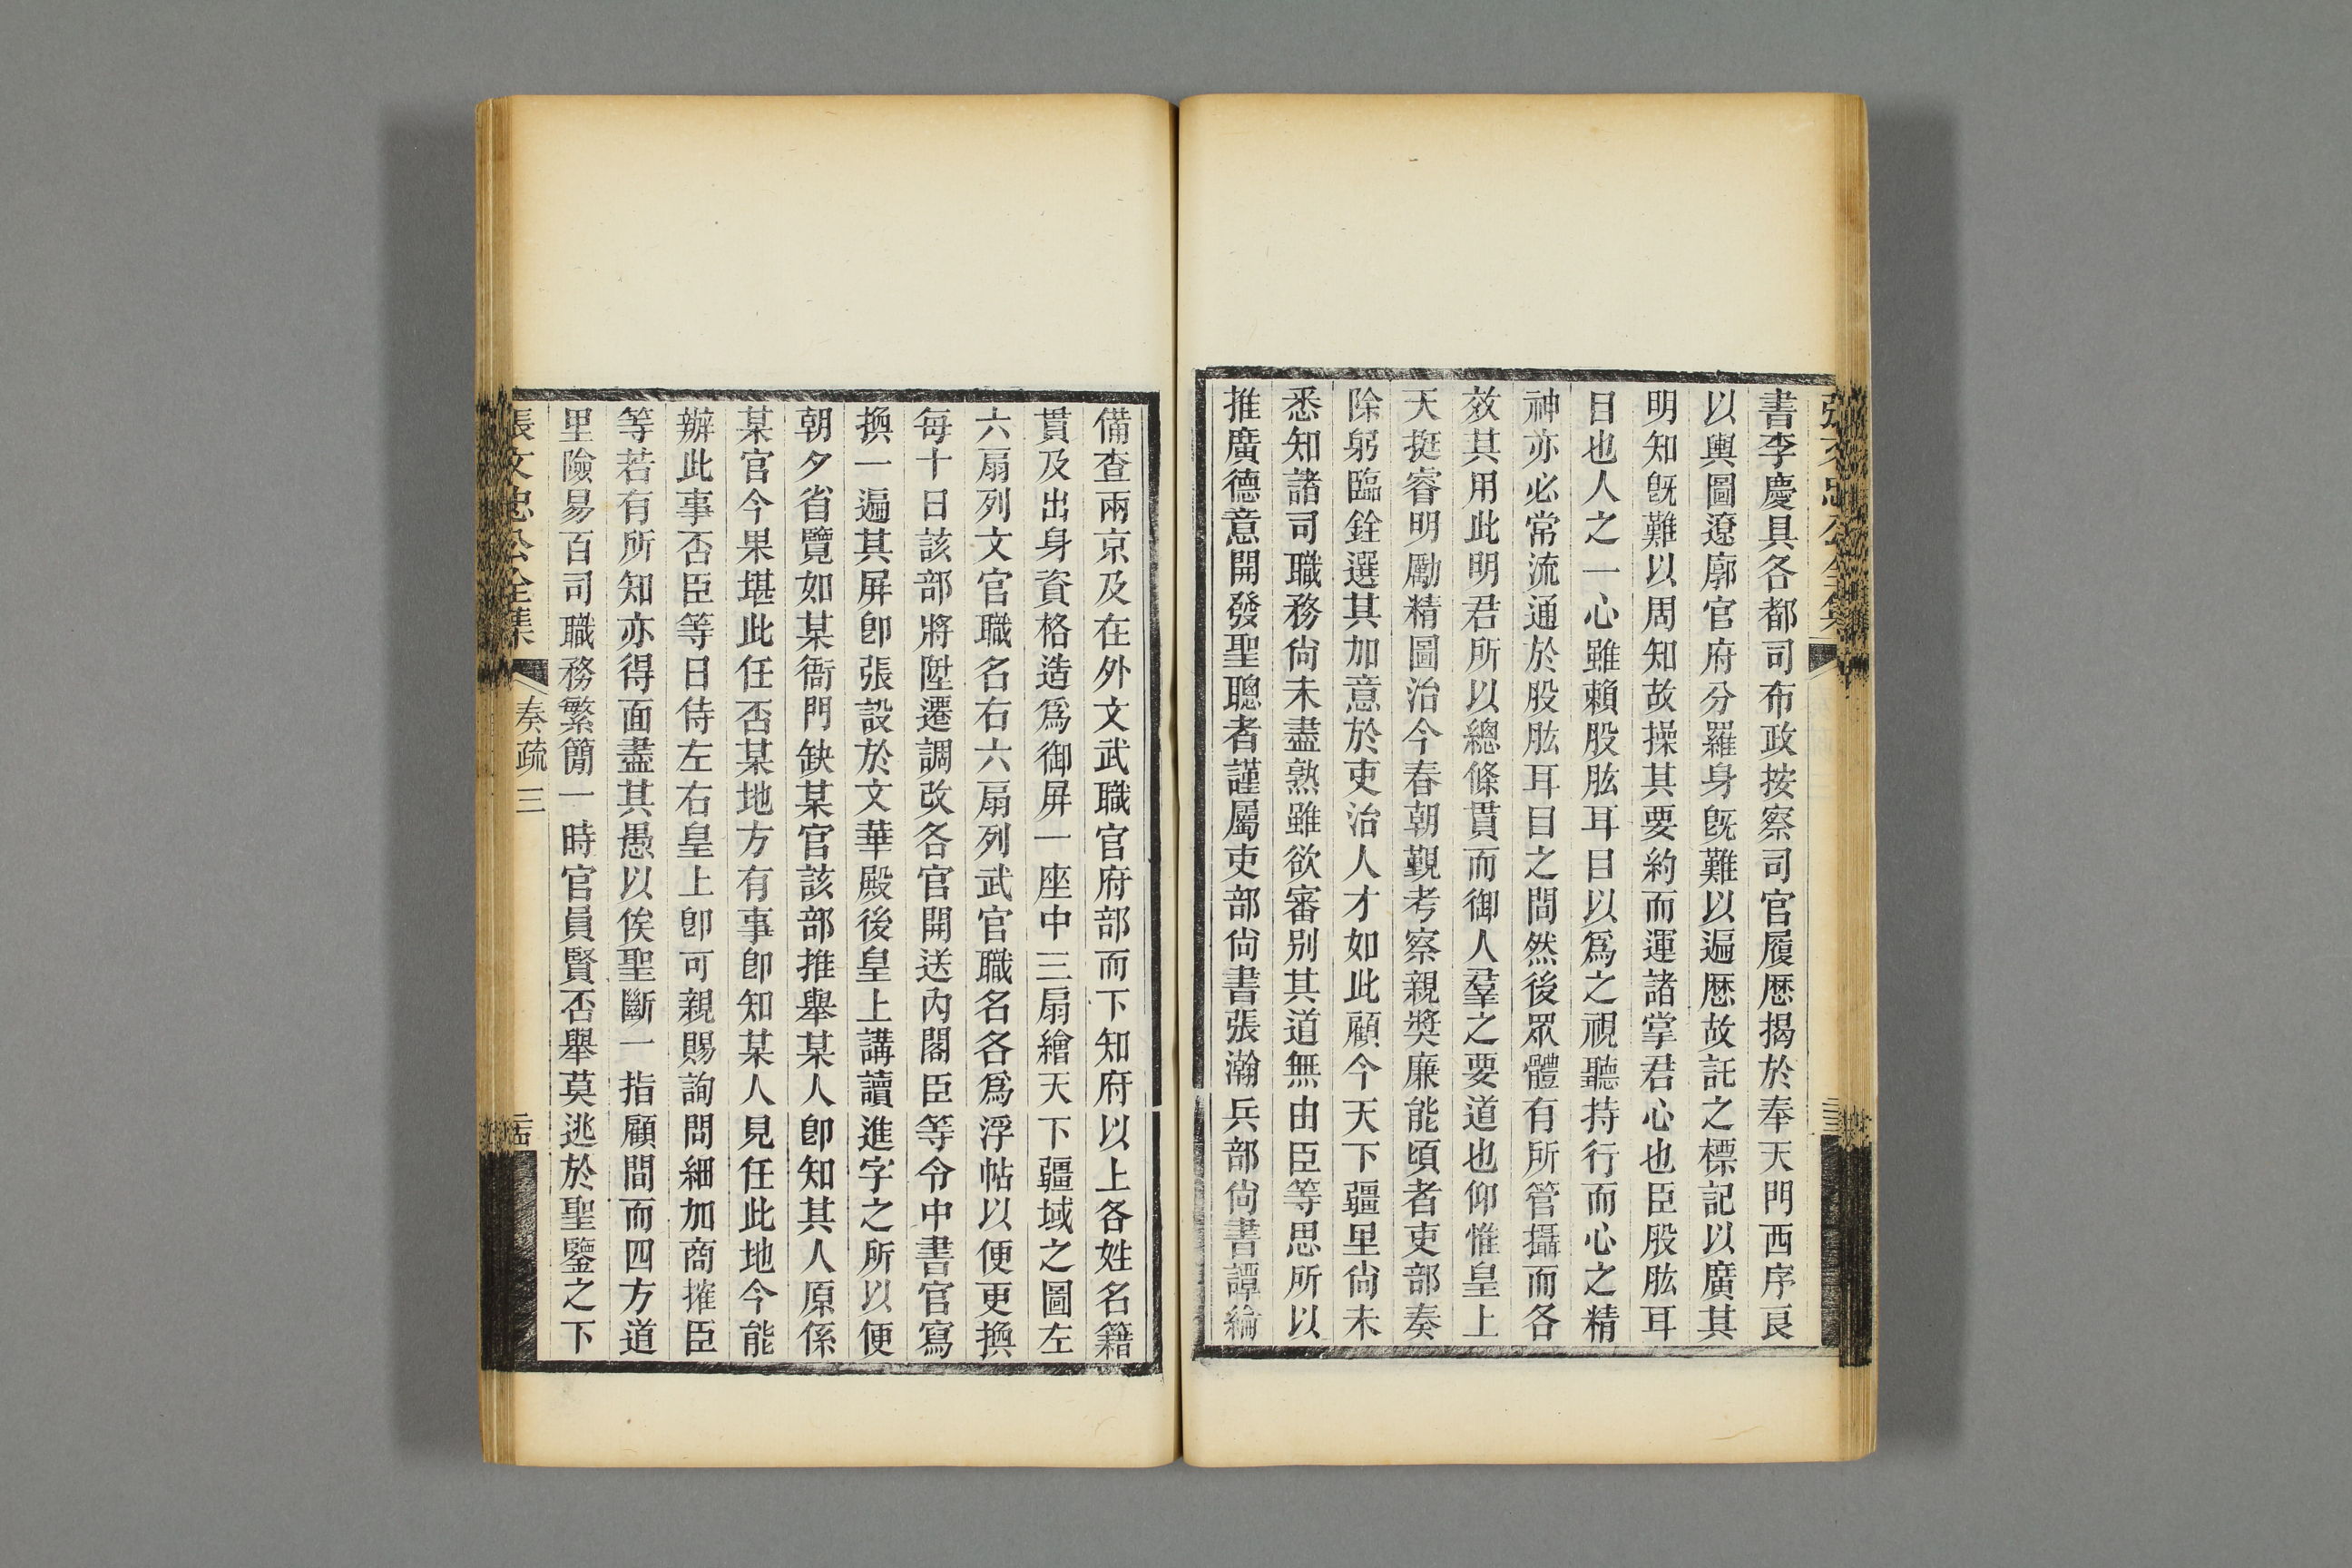 書李慶具各都司布政按察司官履歷揭於奉天門西序良
以輿圖遼廓官府分羅身既難以遍歷故託之標記以廣其
明知既難以周知故操其要約而運諸掌君心也臣股肱耳
目也人之一心雖賴股肱耳目以爲之視聽持行而心之精
神亦必常流通於股肱耳目之間然後眾體有所管攝而各
效其用此明君所以總條貫而御人羣之要道也仰惟皇上
天挺睿明勵精圖治今春朝覲考察親獎廉能頃者吏部奏
除躬臨銓選其加意於吏治人才如此顧今天下疆里尙未
悉知諸司職務尙未盡熟雖欲審別其道無由臣等思所以
推廣德意開發聖聰者謹屬吏部尙書張瀚兵部尙書譚綸
備查兩京及在外文武職官府部而下知府以上各姓名籍
貫及出身資格造爲御屏一座中三扇繪天下疆域之圖左
六扇列文官職名右六扇列武官職名各爲浮帖以便更換
每十日該部將陞遷調改各官開送內閣臣等令中書官寫
換一遍其屏卽張設於文華殿後皇上講讀進字之所以便
朝夕省覽如某衙門缺某官該部推舉某人卽知其人原係
某官今果堪此任否某地方有事卽知某人見任此地今能
辦此事否臣等日侍左右皇上卽可親賜詢問細加商搉臣
等若有所知亦得面盡其愚以俟聖斷一指顧間而四方道
里險易百司職務繁簡一時官員賢否舉莫逃於聖鑒之下
張文忠公全集 奏疏三